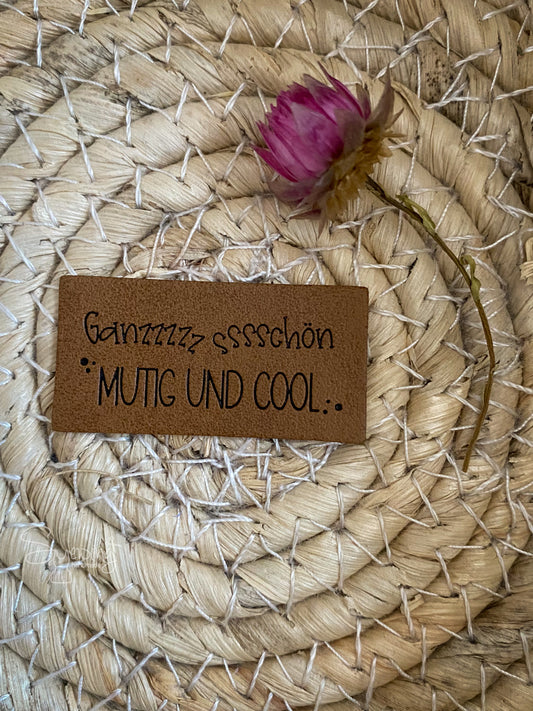 Ganzzzzz sssschön
MUTIG UND COOL